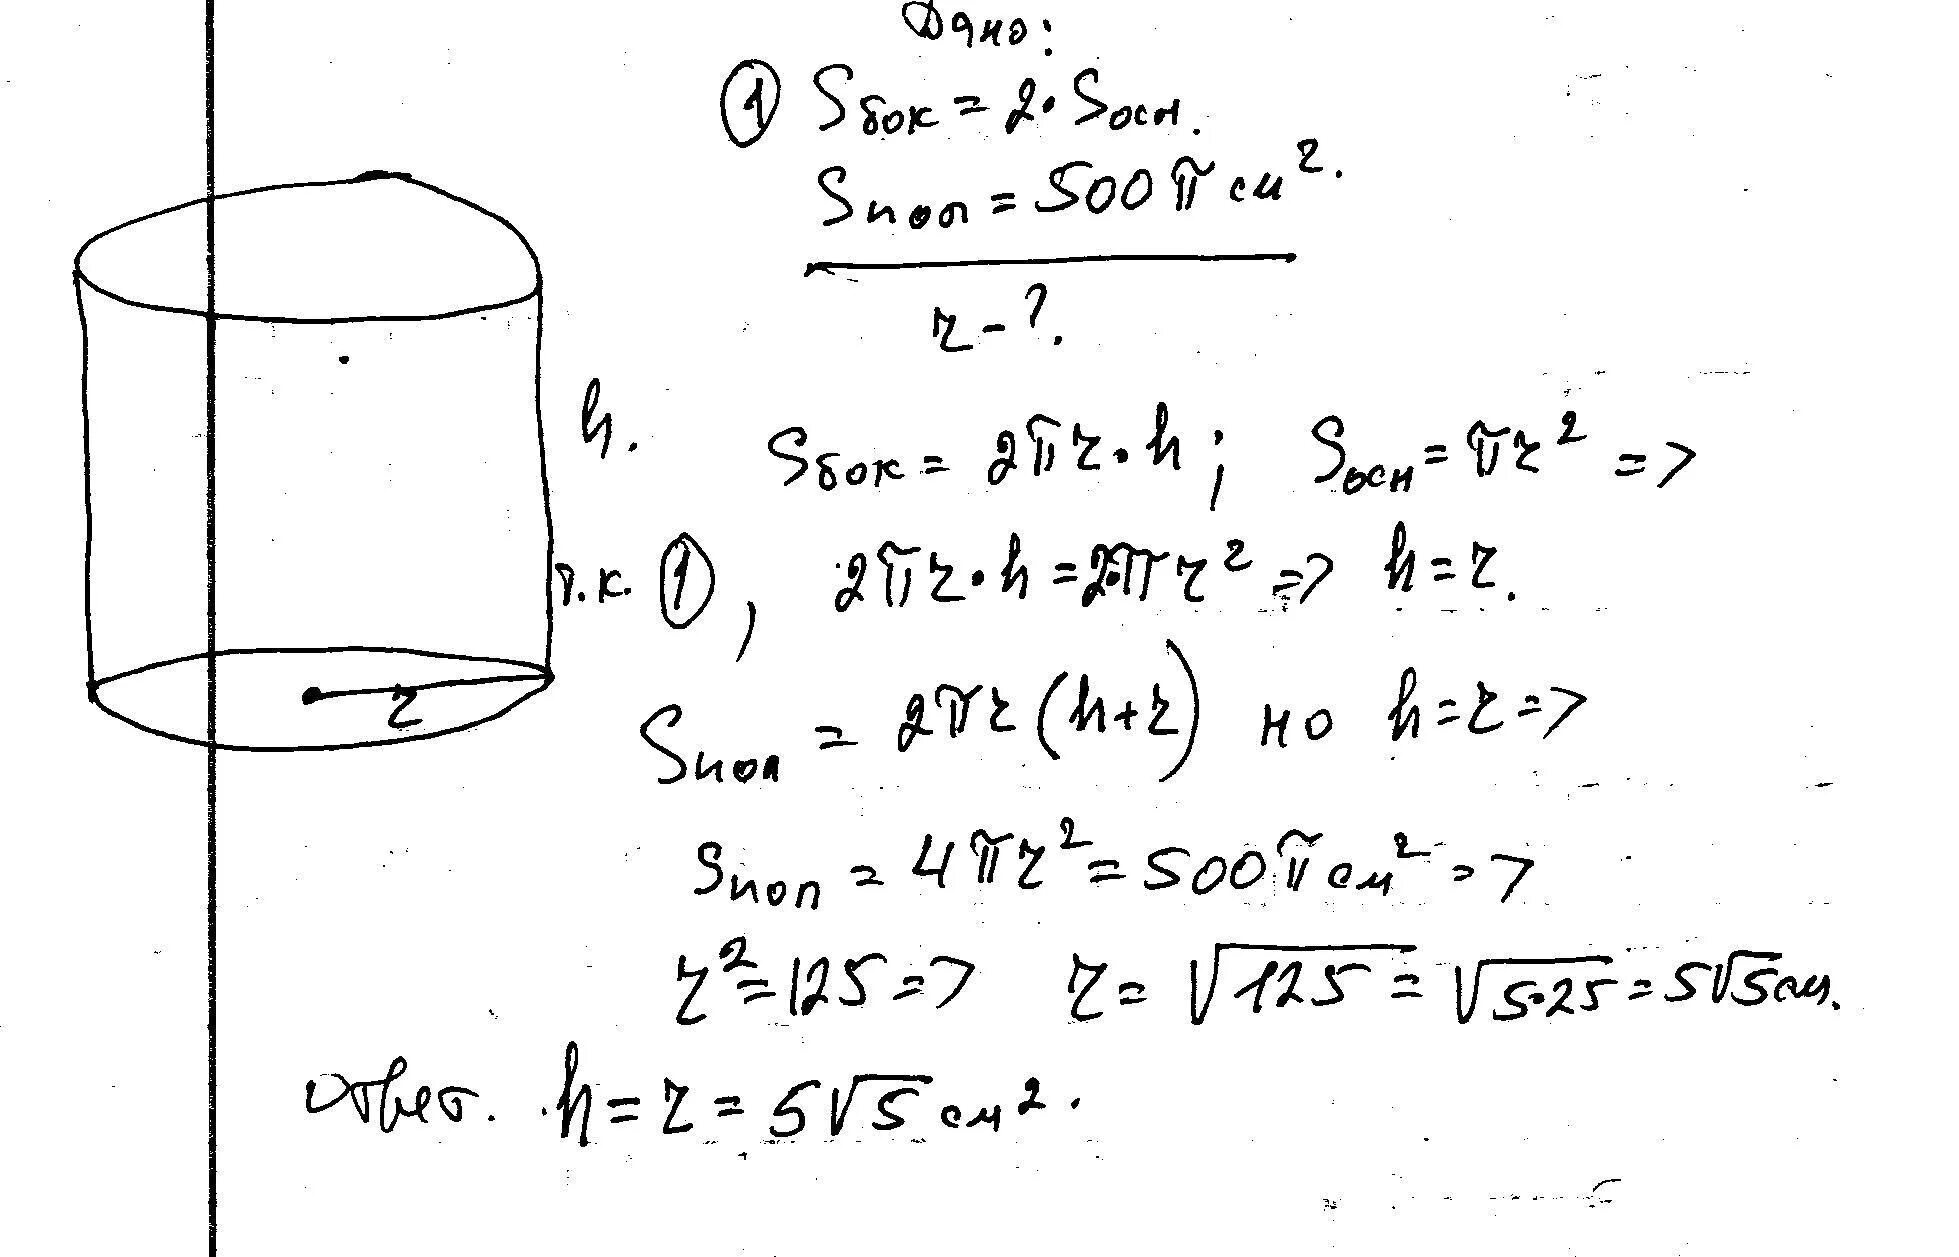 Дано:
① Sбок = 2·Sосн.
Sпол = 500π см².
r - ?.
h.
Sбок = 2πr·h; Sосн = πr² =>
т.к. ①, 2πr·h = 2·πr² => h = r.
r
Sпол = 2πr(h+r) но h = r =>
Sпол = 4πr² = 500π см² =>
r² = 125 => r = √125 = √5·25 = 5√5 см.
Ответ. h = r = 5√5 см².